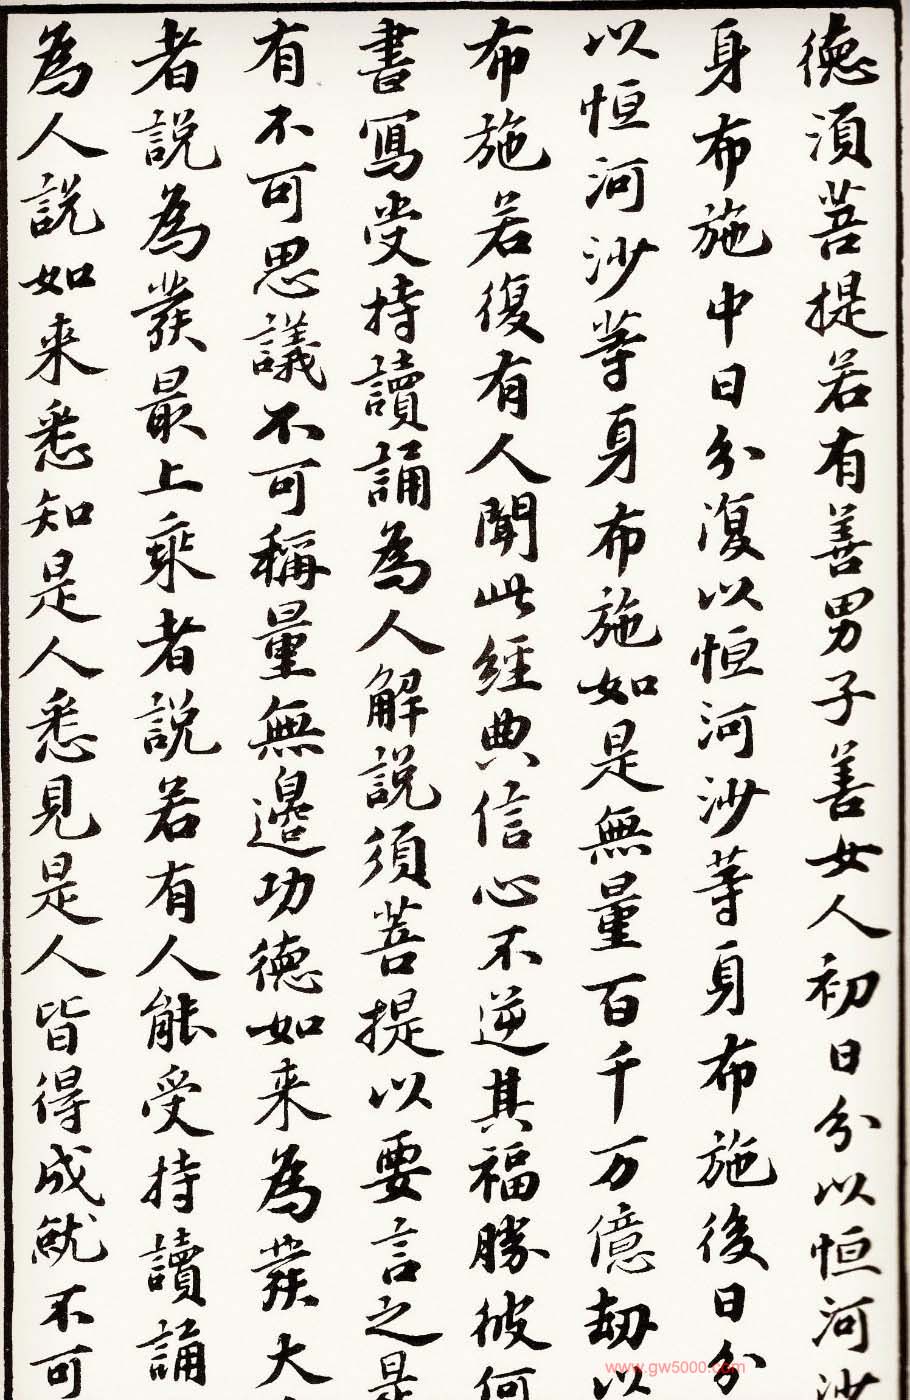 德須菩提若有善男子善女人初日分以恒河沙
身布施中日分復以恒河沙等身布施後日分
以恒河沙等身布施如是無量百千万億劫以
布施若復有人聞此經典信心不逆其福勝彼何
書寫受持讀誦為人解說須菩提以要言之是
有不可思議不可稱量無邊功德如来為發大
者說為發最上乘者說若有人能受持讀誦
為人說如来悉知是人悉見是人皆得成就不可
www.gw5000.com